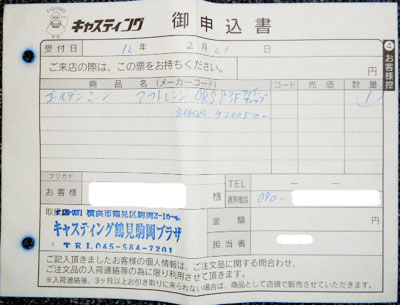 キャスティング 御申込書
受付日 12年 2月 21日
ご来店の際は、この票をお持ちください。 円
④ お客様控
商品名(メーカーコード) コード 売価 数量
ゴールデンミーン
1
フリガナ
お客様 様
TEL － －
携帯電話 090-
取 横浜市鶴見区駒岡2-16-
キャスティング鶴見駒岡プラザ
TEL 045-584-7201
金額 円
担当者
ご記入頂きましたお客様の個人情報は、ご注文品に関する問合わせ、
ご注文品の入荷連絡等の為に限り利用させて頂きます。
※入荷連絡後、3ヶ月以上お引き取りに来られない場合は、商品として店頭で販売させていただきます。